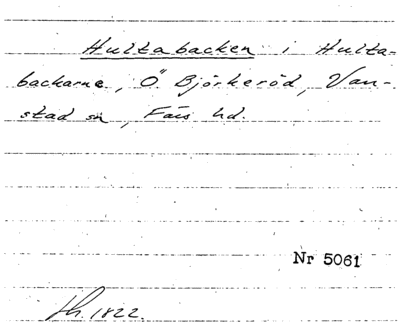 Hultabacken i Hulta-
backarne, Ö. Björkeröd, Van-
stad sn, Färs hd.
Nr 5061
1822.